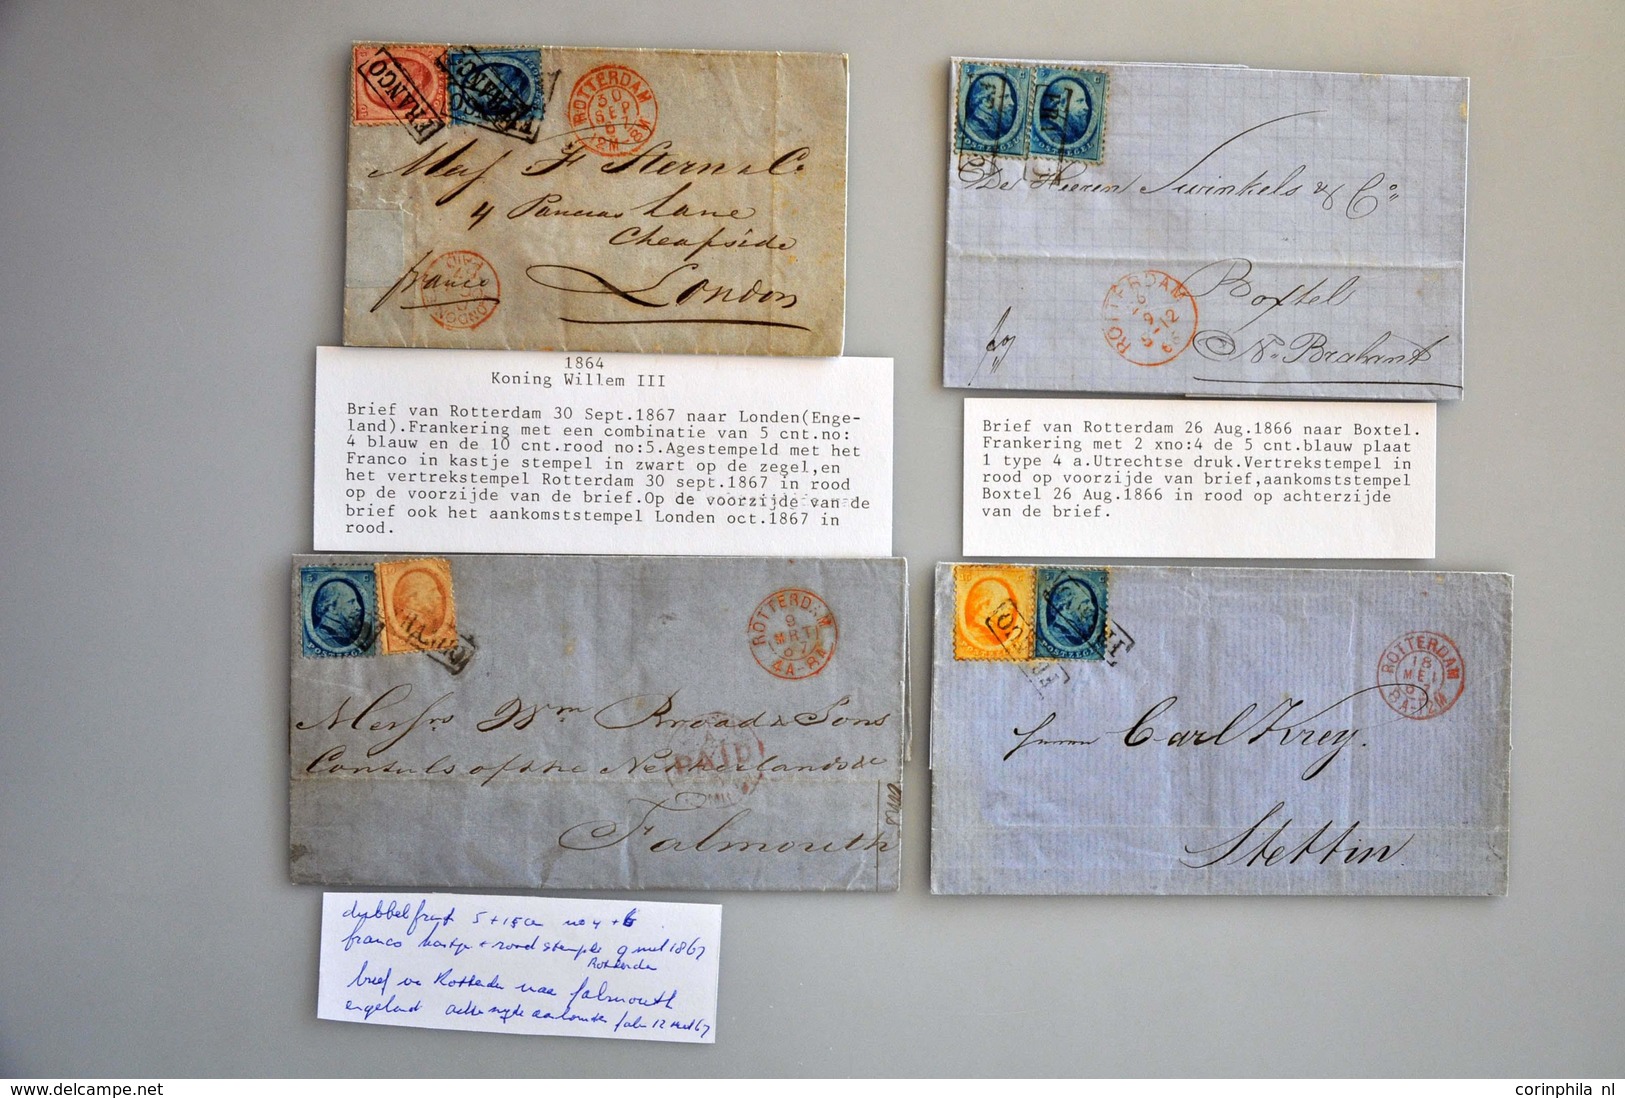 FRANCO
ROTTERDAM
30
SEP
Mess F Stern & Co
4 Pancras Lane
Cheapside
London
franco
LONDON
PAID
1864
Koning Willem III
Brief van Rotterdam 30 Sept.1867 naar Londen(Enge-
land).Frankering met een combinatie van 5 cnt.no:
4 blauw en de 10 cnt.rood no:5.Agestempeld met het
Franco in kastje stempel in zwart op de zegel,en
het vertrekstempel Rotterdam 30 sept.1867 in rood
op de voorzijde van de brief.Op de voorzijde van de
brief ook het aankomststempel Londen oct.1867 in
rood.
POSTZEGEL
De Heeren Swinkels & Co
ROTTERDAM
Boxtel
N. Brabant
Brief van Rotterdam 26 Aug.1866 naar Boxtel.
Frankering met 2 xno:4 de 5 cnt.blauw plaat
1 type 4 a.Utrechtse druk.Vertrekstempel in
rood op voorzijde van brief,aankomststempel
Boxtel 26 Aug.1866 in rood op achterzijde
van de brief.
5 C
POSTZEGEL
FRANCO
ROTTERDAM
9
MRT
67
Messrs Wm Broad & Sons
Consuls of the Netherlands
PAID
Falmouth
FRANCO
POSTZEGEL
ROTTERDAM
18
MEI
67
Herrn Carl Krey.
Stettin
dubbelfrank 5 + 15 ct no 4 + 6
franco kastje + rond stempel 9 mrt 1867
Rotterdam
brief van Rotterdam naar falmouth
engeland achterzijde aankomst falm 12 mrt 67
corinphila nl